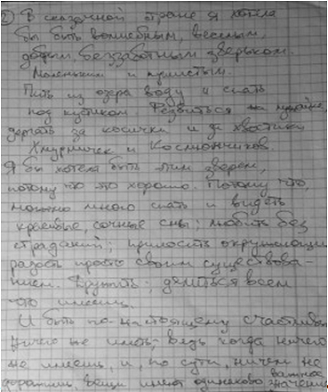 2) В сказочной стране я хотела
бы быть волшебным, веселым,
добрым беззаботным зверьком.
Маленьким и пушистым.
Пить из озера воду и спать
под кустиком. Резвиться на
дергать за косички и за хвостики
Хмуриков и Космончиков.
Я бы хотела быть этим зверем,
потому что это хорошо. Потому что,
можно много спать и видеть
красивые, сочные сны; любить без
страданий; приносить окружающим
радость просто своим существова-
нием. Дружить; делиться всем
что имеешь.
И быть по-настоящему счастливым
ничего не имея. Ведь когда ничего
не имеешь, и, по сути, ничем не
дорожишь. вещи имеют одинаково важное
значение